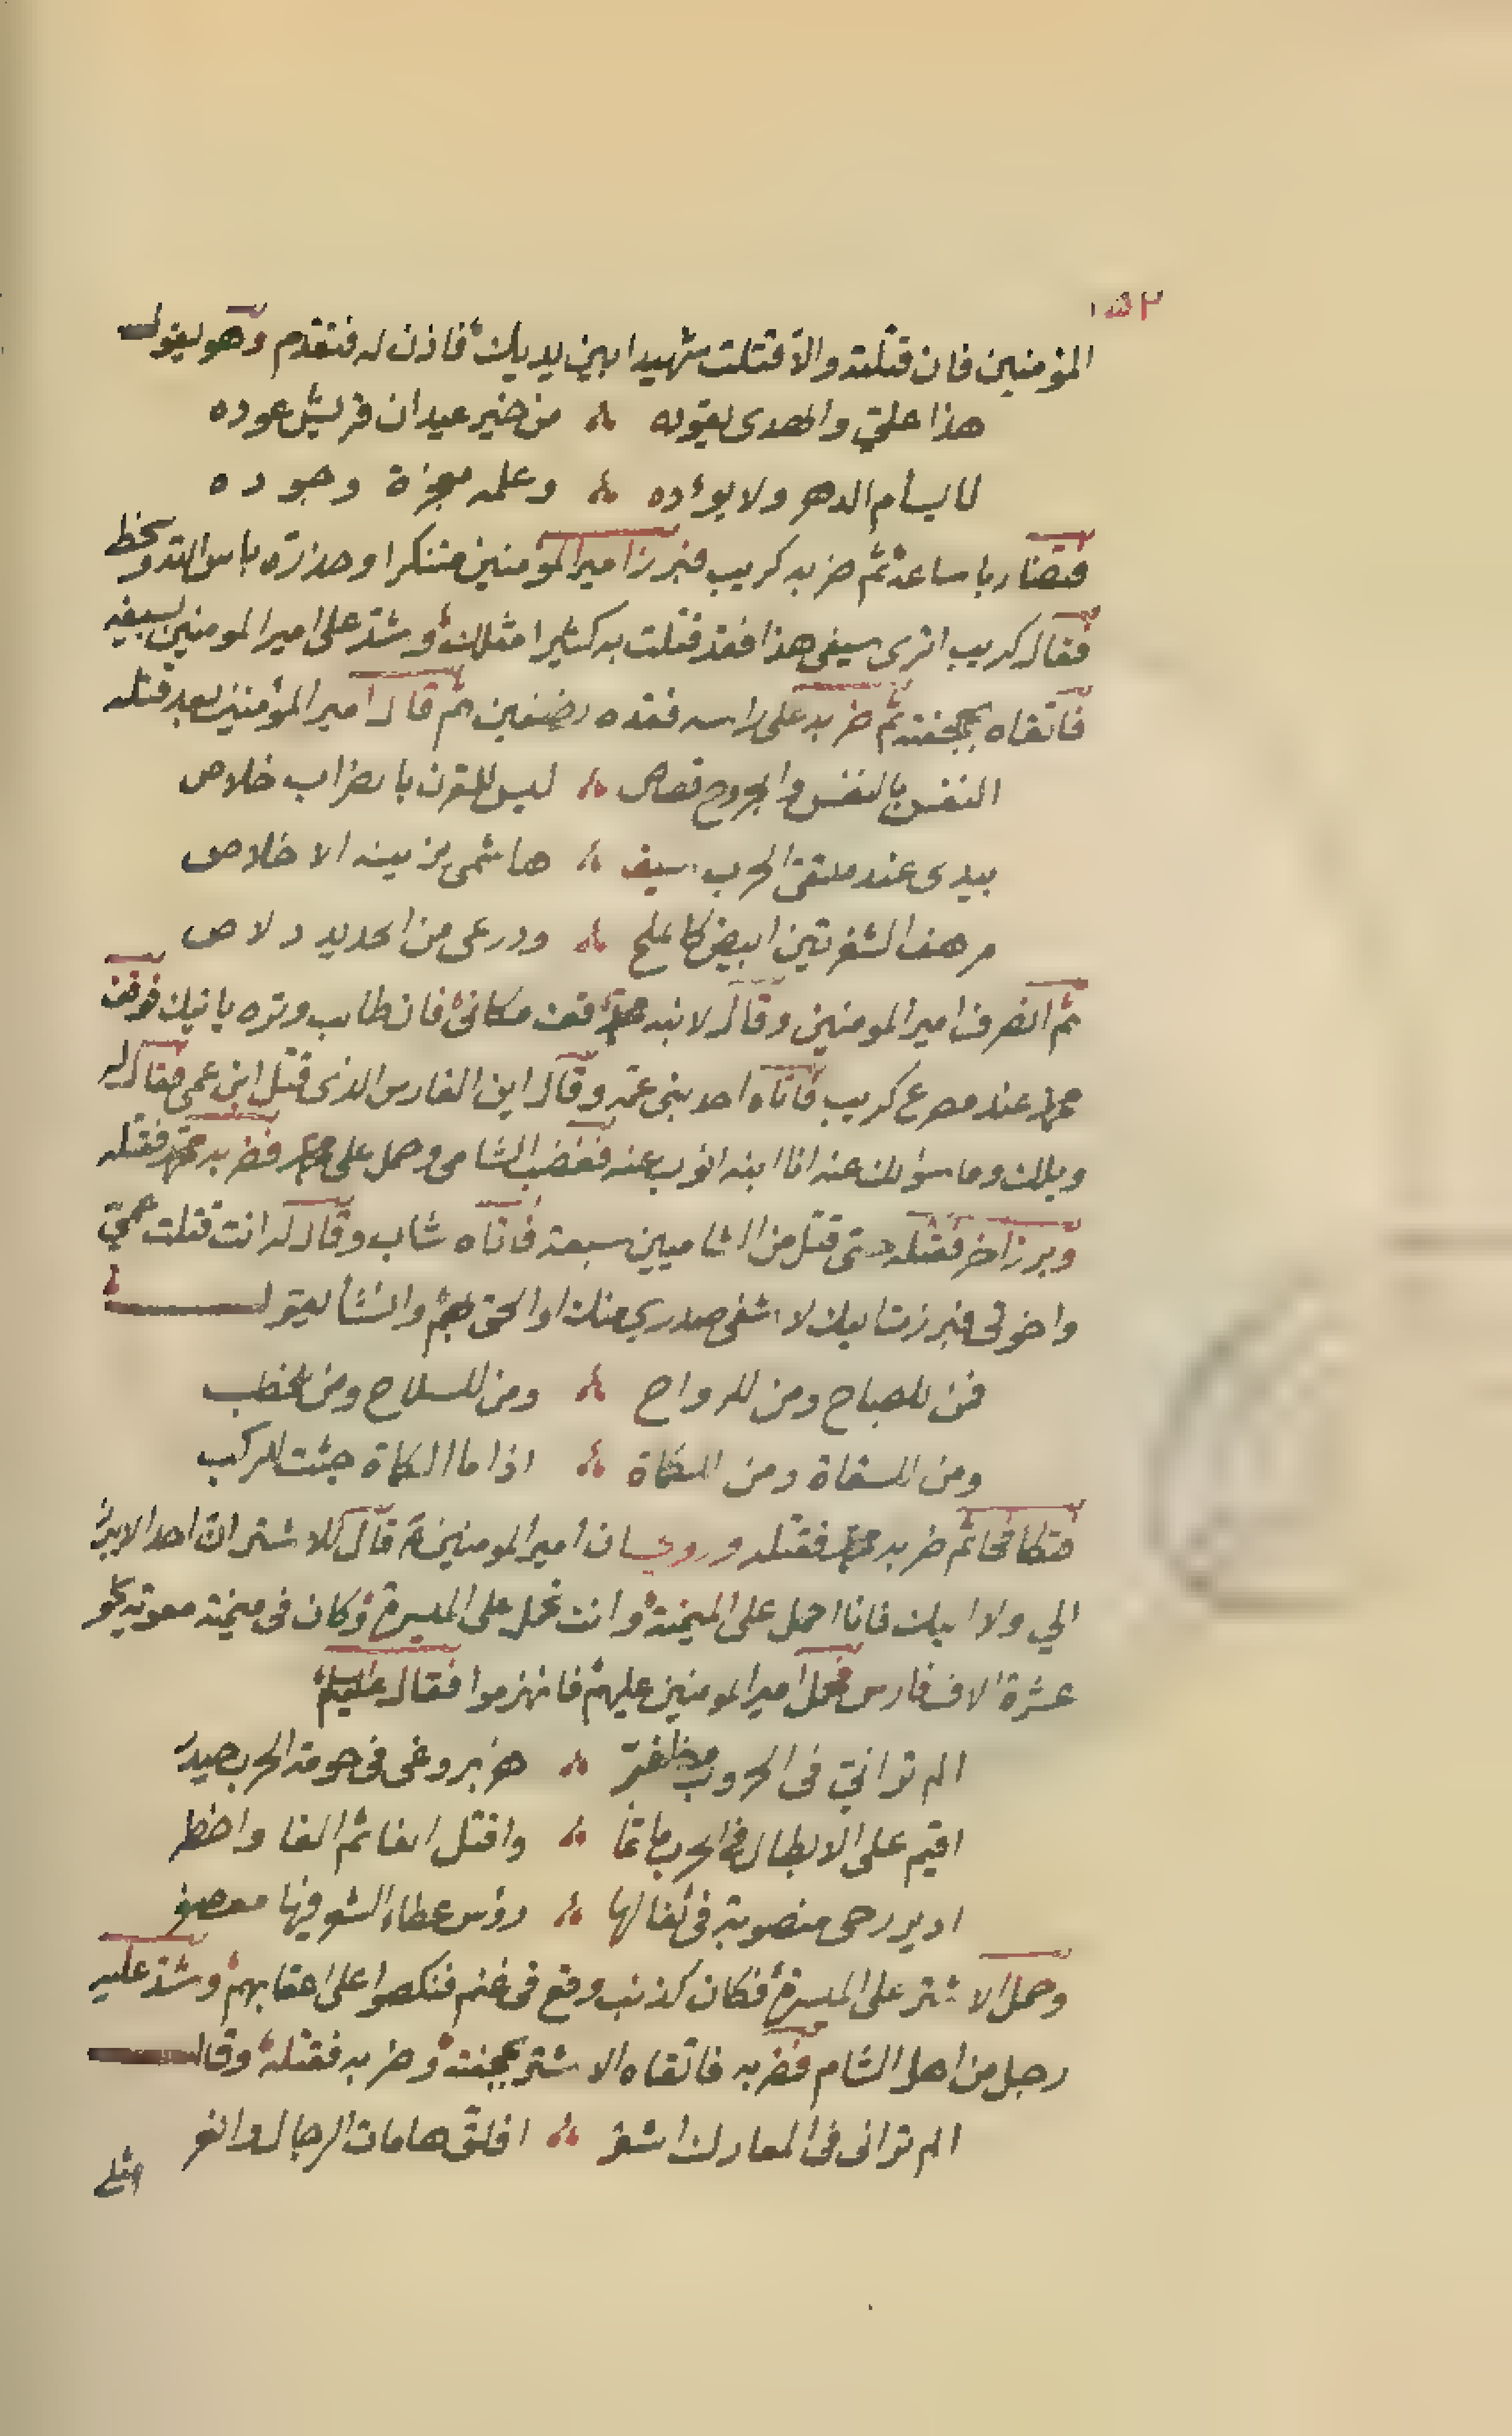 ١٥٢
المؤمنين فان قتلته والا قتلت شهيدا بين يديك فاذن له فتقدم وهو يقول
هذا علي والهدى يقوده من خير عيدان قريش عوده
لا يسأم الدهر ولا يؤده وعلمه معجزة وجوده
فتضاربا ساعة ثم ضربه كريب فبرز امير المؤمنين متنكرا وحذره باس الله وسخطه
فقال كريب اترى سيفي هذا فقد قتلت به كثيرا مثلك وشد على امير المومنين بسيفه
فاتقاه بحجفته ثم ضربه على راسه فقده نصفين ثم قال امير المؤمنين بعد قتله
النفس بالنفس والجروح قصاص ليس للقرن بالضراب خلاص
بيدي عند ملتقى الحرب سيف هاشمي يزينه الاخلاص
مرهف الشفرتين ابيض كالملح ودرعي من الحديد دلاص
ثم انصرف امير المومنين وقال لابنه محمد قف مكاني فان طالب وتره ياتيك فوقف
محمد عند مصرع كريب فاتاه احد بني عمه وقال اين الفارس الذي قتل ابن عمي فقال له
ويلك وما سؤلك عنه انا ابنه انوب عنه فغضب الشامي وحمل على محمد فضربه محمد فقتله
وبرز اخر فقتله حتى قتل من الشاميين سبعة فاتاه شاب وقال له انت قتلت عمي
واخوتي فبرزت اليك لاشفي صدري منك او الحق بهم وانشأ يقول
فمن للصباح ومن للرواح ومن للسلاح ومن للخطب
ومن للسقاة ومن للكماة اذا ما الكماة جثت للركب
فتكافحا ثم ضربه محمد فقتله وروي ان امير المومنين قال للاشتر ان احد الابرد
الي ولا اليك فانا احمل على الميمنة وانت تحمل على الميسرة وكان في ميمنة معوية نحو
عشرة الاف فارس فحمل امير المومنين عليهم فانهزموا فقال
الم تر اني في الحروب مظفر هزبر وغى في حومة الحرب حيدر
اقيم على الابطال في الحرب ماتما واقتل الفا ثم الفا واخطر
ادير رحى منصوبة في ثفالها رؤس عطاء الشو فيها معصفر
وحمل الاشتر على الميسرة فكان كذئب وقع في غنم فنكصوا على اعقابهم وشد عليه
رجل من اهل الشام فضربه فاتقاه الاشتر بحجفته وضربه فقتله وقال
الم تراني في المعارك اشتر افلق هامات الرجال وانفر